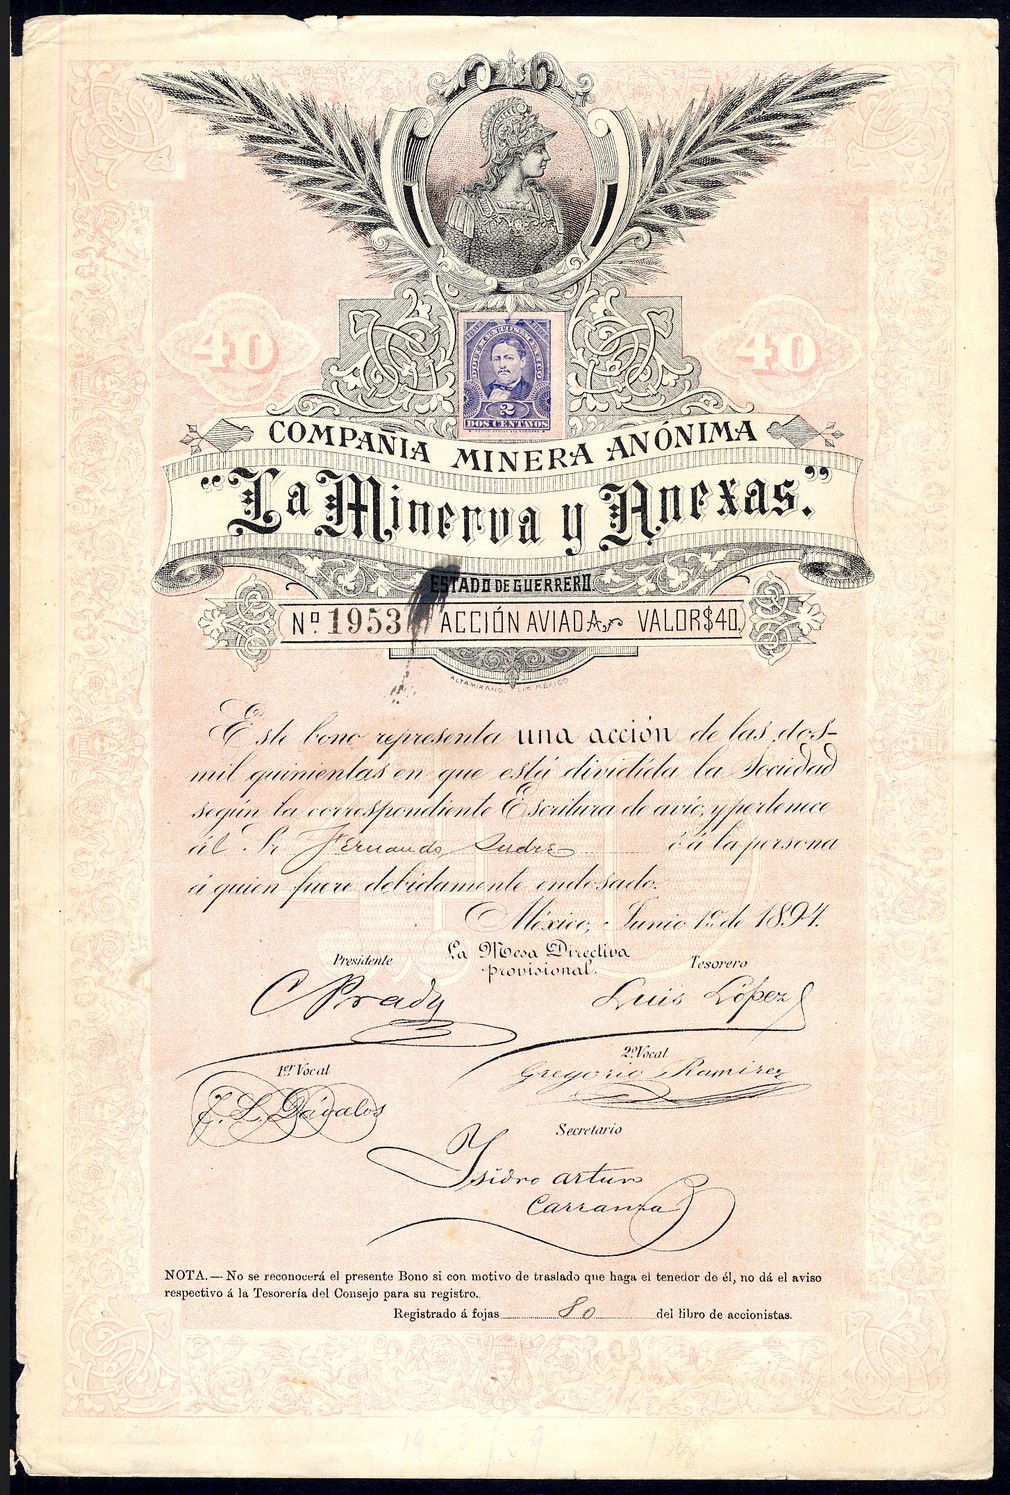 40 40
2
DOS CENTAVOS
COMPAÑIA MINERA ANÓNIMA
"La Minerva y Anexas."
ESTADO DE GUERRERO.
Nº 1953 ACCIÓN AVIADA VALOR $40.
ALTAMIRANO. LIT. MÉXICO
Este bono representa una acción de las dos-
mil quinientas en que está dividida la Sociedad
según la correspondiente Escritura de avío, y pertenece
ál Sr Fernando Sudre ó á la persona
á quien fuere debidamente endosado.
México, Junio 1º de 1894.
La Mesa Directiva
provisional.
Presidente Tesorero
C Prady Luis López
1er Vocal 2º Vocal
L. Dávalos Gregorio Ramirez
Secretario
Isidro arturo
Carranza
NOTA.—No se reconocerá el presente Bono si con motivo de traslado que haga el tenedor de él, no dá el aviso
respectivo á la Tesorería del Consejo para su registro.
Registrado á fojas 80 del libro de accionistas.